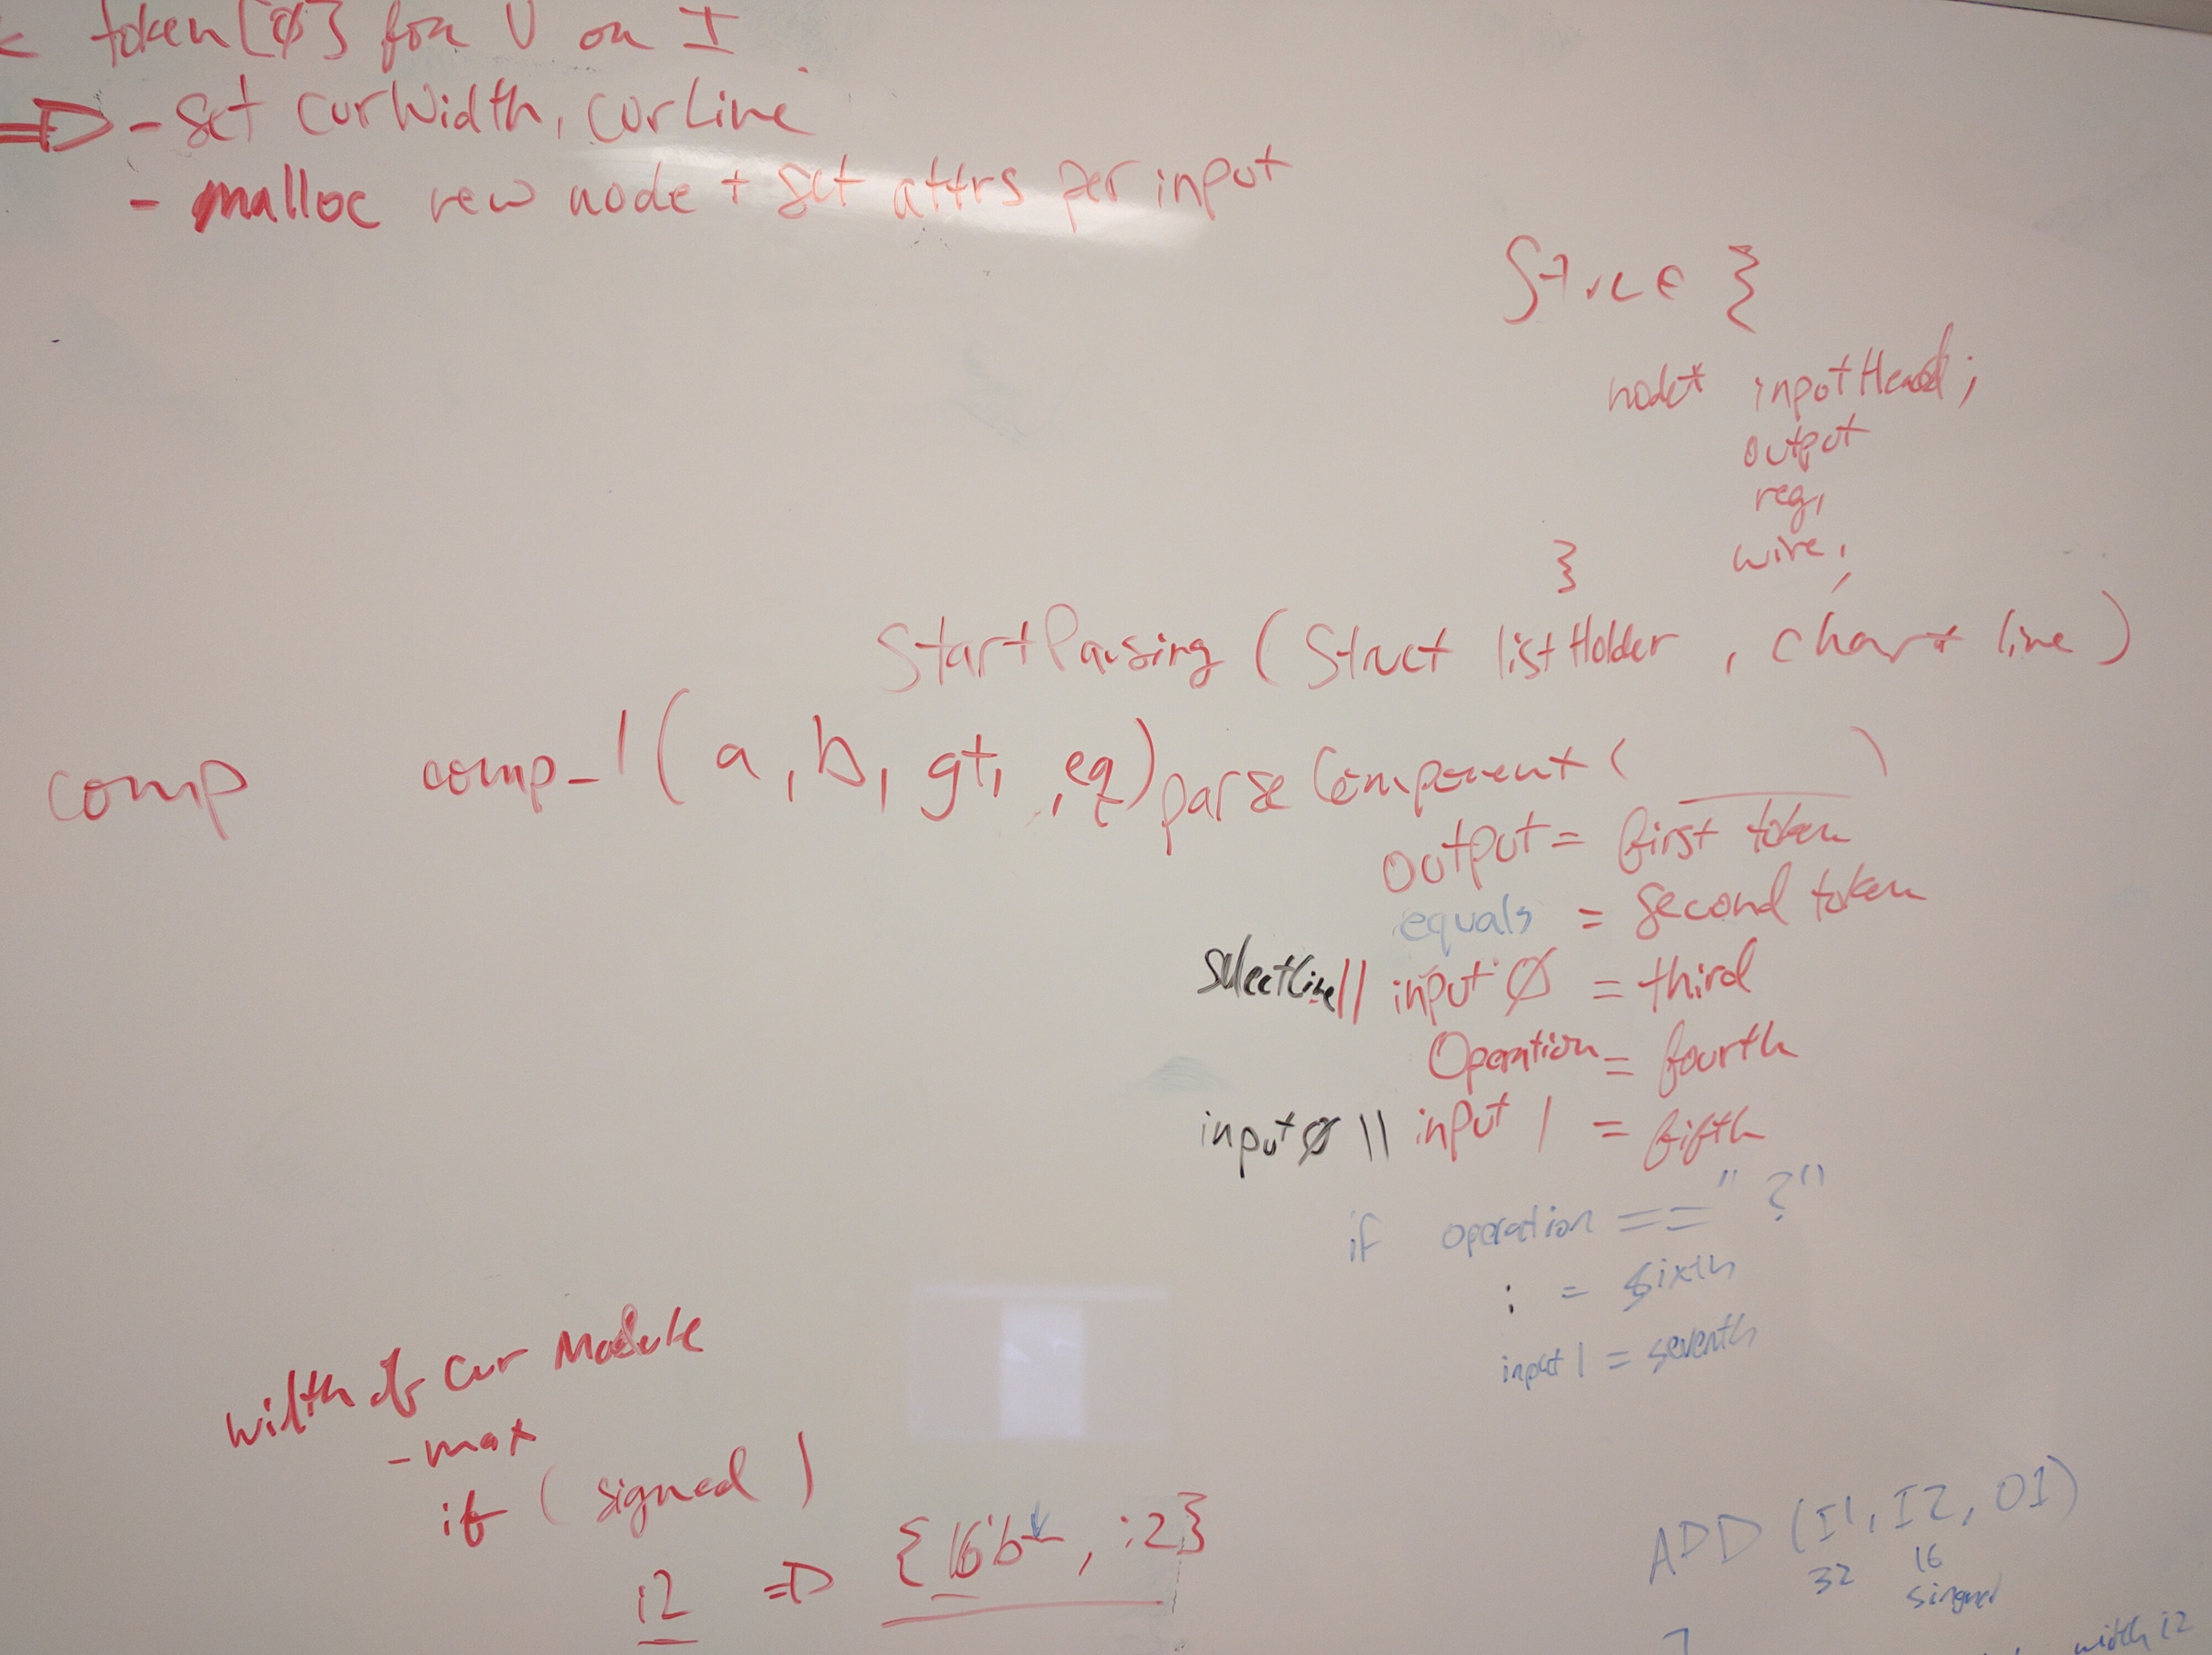 token[Ø] for U or I
=D - set curWidth, curLine
- malloc new node + set attrs per input
Struct {
node* inputHead;
output
reg,
wire,
}
StartParsing (Struct listHolder, char* line)
comp comp_1 (a, b, gt, , eq)
parseComponent ( )
output = first token
equals = second token
Selectline || input Ø = third
Operation = fourth
input Ø || input 1 = fifth
if operation == "?"
: = sixth
input 1 = seventh
width of cur module
- max
if (signed)
i2 =D {16'b , i2}
ADD (I1, I2, O1)
32 16
singned
width i2